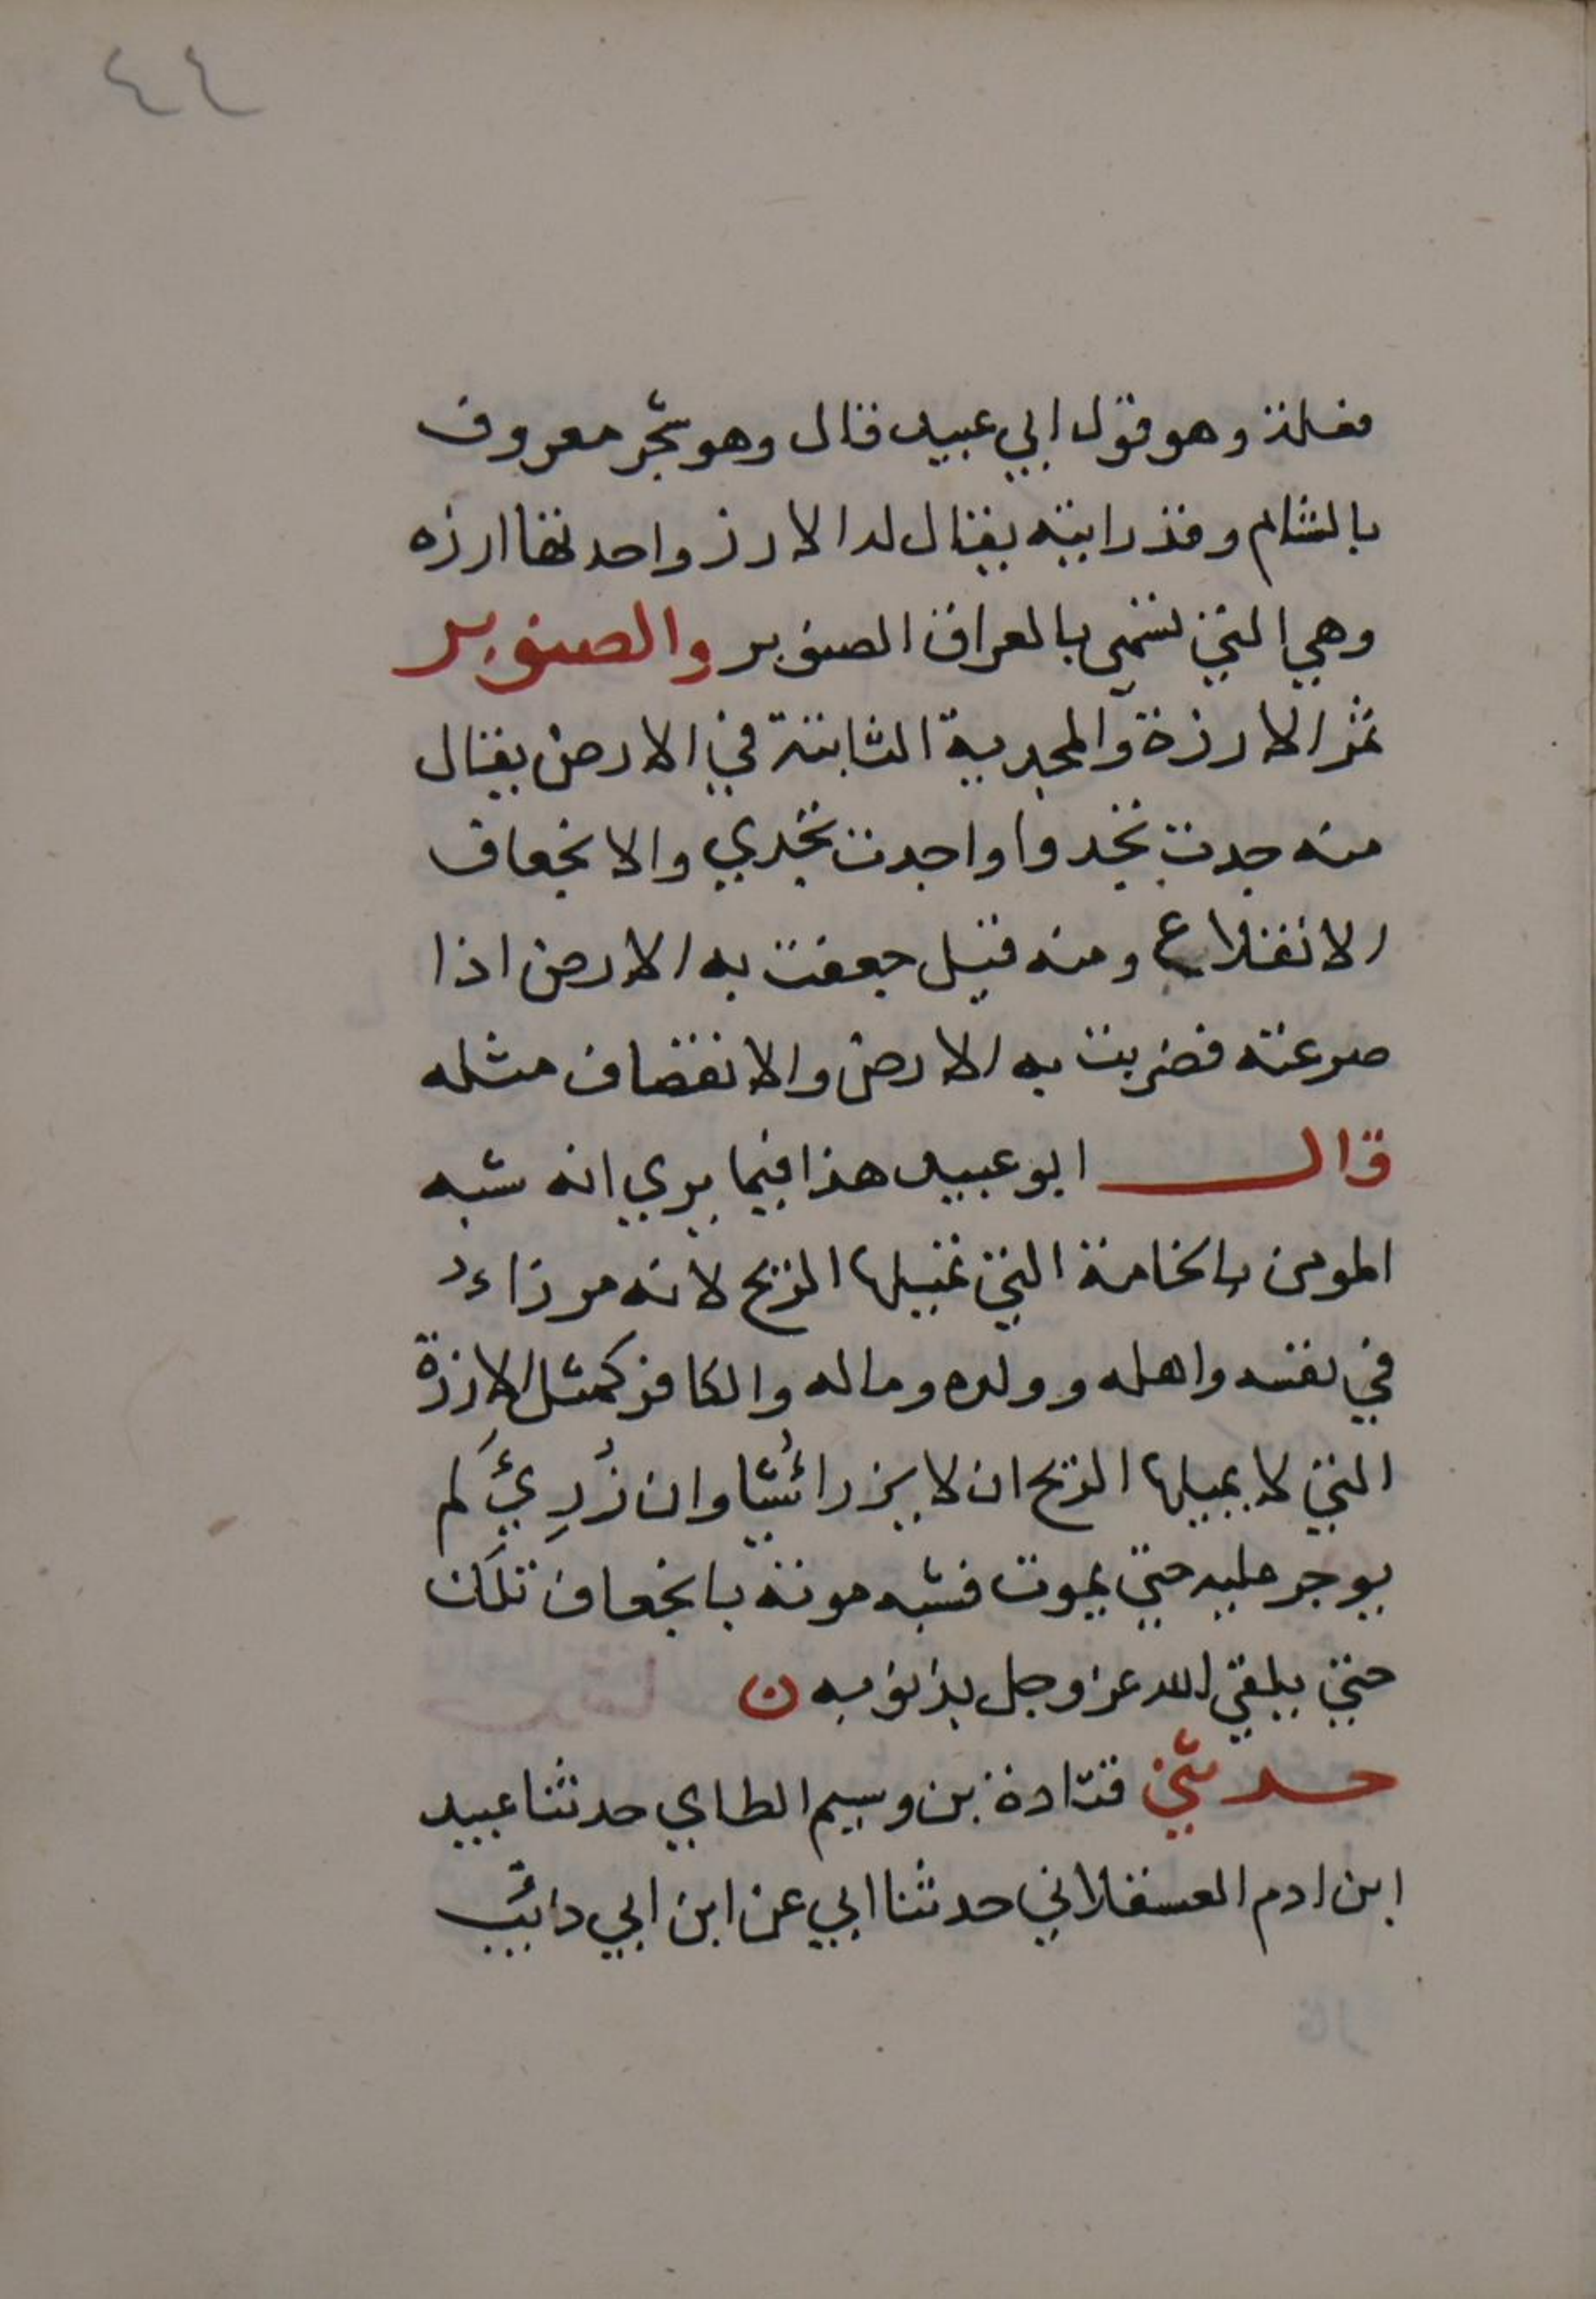 ٤٤
فعلة وهو قول ابي عبيد قال وهو شجر معروف
بالشام وقد رايته يقال له الارز واحدتها ارزه
وهي التي تسمى بالعراق الصنوبر والصنوبر
ثمر الارزة والمجدية الثابتة في الارض يقال
منه جدت تجدوا واجدت تجدي والانجعاف
الانقلاع ومنه قيل جعفت به الارض اذا
صرعته فضربت به الارض والانقضاف مثله
قال ابو عبيد هذا فيما يري انه شبه
المومن بالخامة التي تميلها الريح لانه مرزاء
في نفسه واهله وولده وماله والكافر كمثل الارزة
التي لا يميلها الريح ان لا يرزا شيئا وان رُزِيَ لم
يوجر عليه حتي يموت فشبه موته بانجعاف تلك
حتي يلقي الله عز وجل بذنوبه ن
حدثني قتادة بن وسيم الطاي حدثنا عبيد
ابن ادم العسقلاني حدثنا ابي عن ابن ابي ذائب